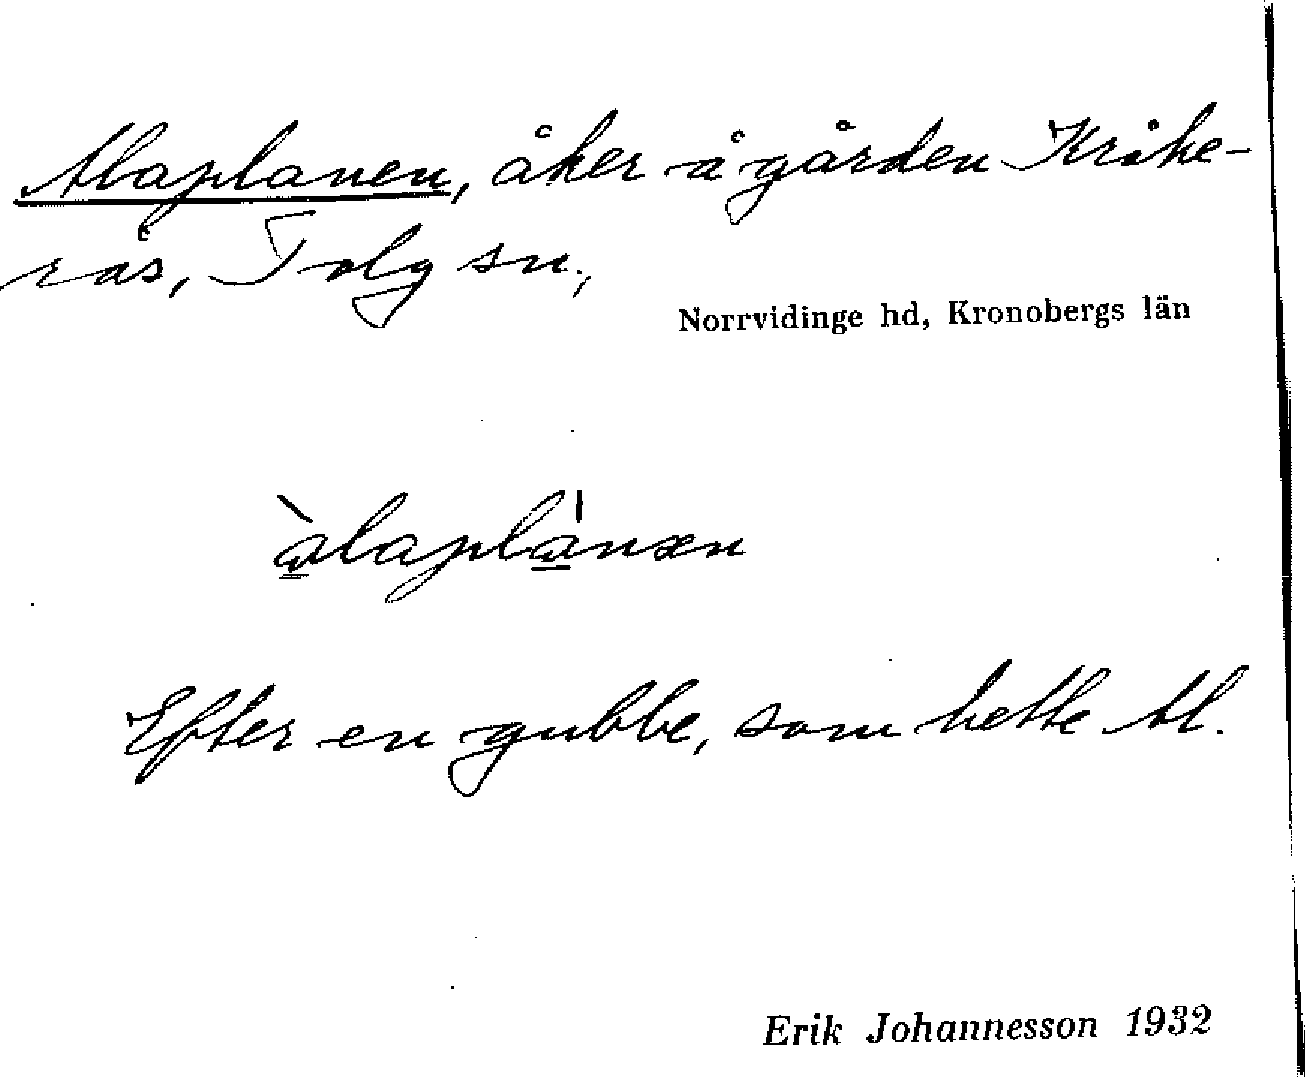 Alaplanen, åker å gården Kråke-
rås, Tolg sn.,
Norrvidinge hd, Kronobergs län
àlaplánæn
Efter en gubbe, som hette Al.
Erik Johannesson 1932